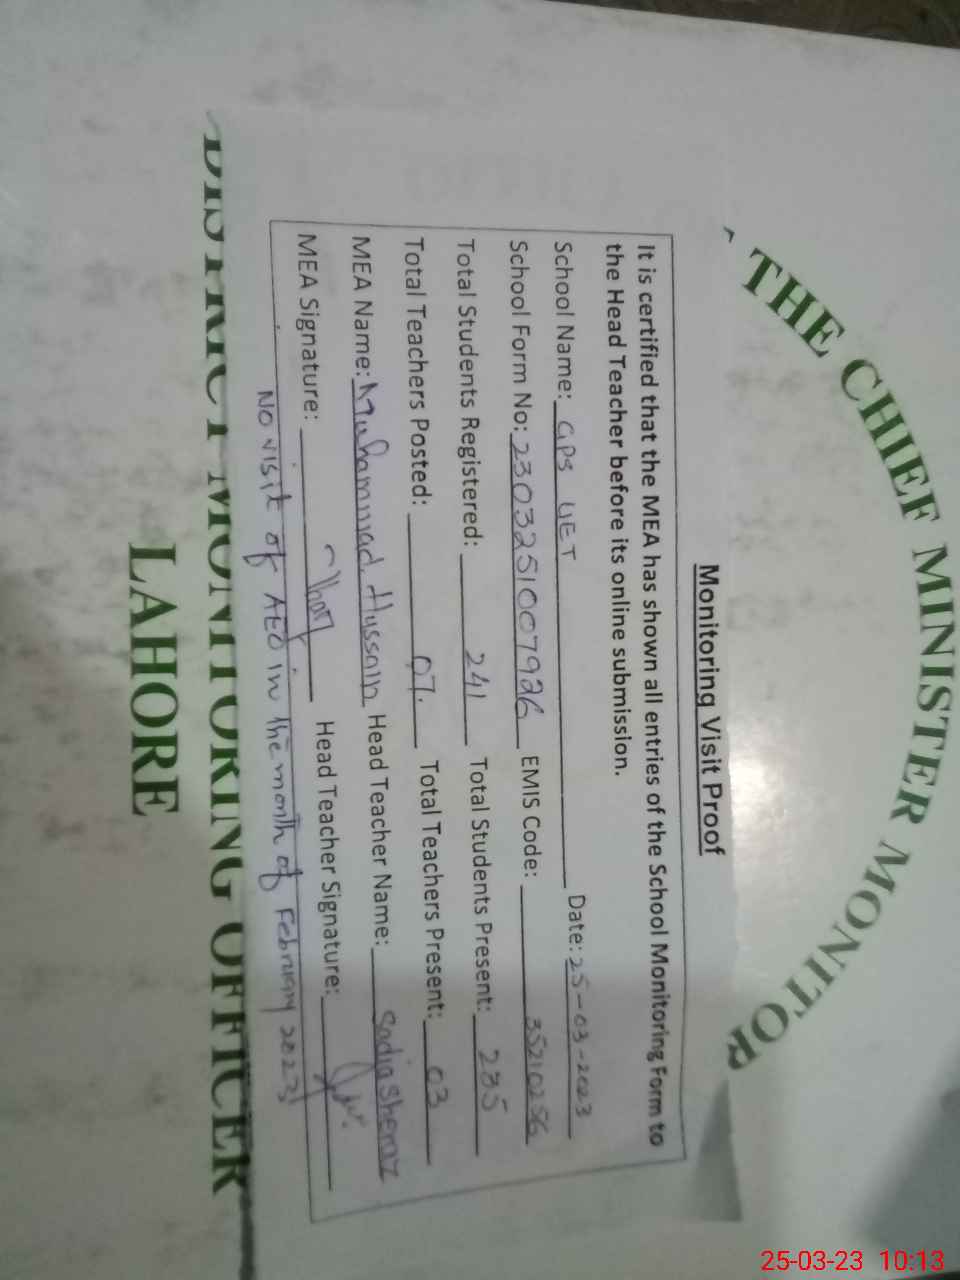 THE CHIEF MINISTER MONITOR
Monitoring Visit Proof
It is certified that the MEA has shown all entries of the School Monitoring Form to
the Head Teacher before its online submission.
School Name: GPS UET Date: 25-03-2023
School Form No: 2303251007926 EMIS Code: 35210256
Total Students Registered: 241 Total Students Present: 235
Total Teachers Posted: 07. Total Teachers Present: 03
MEA Name: Muhammad Hussain Head Teacher Name: Sadia
MEA Signature: Head Teacher Signature:
No visit of AEO in the month of February 2023
DISTRICT MONITORING OFFICER
LAHORE
25-03-23 10:13